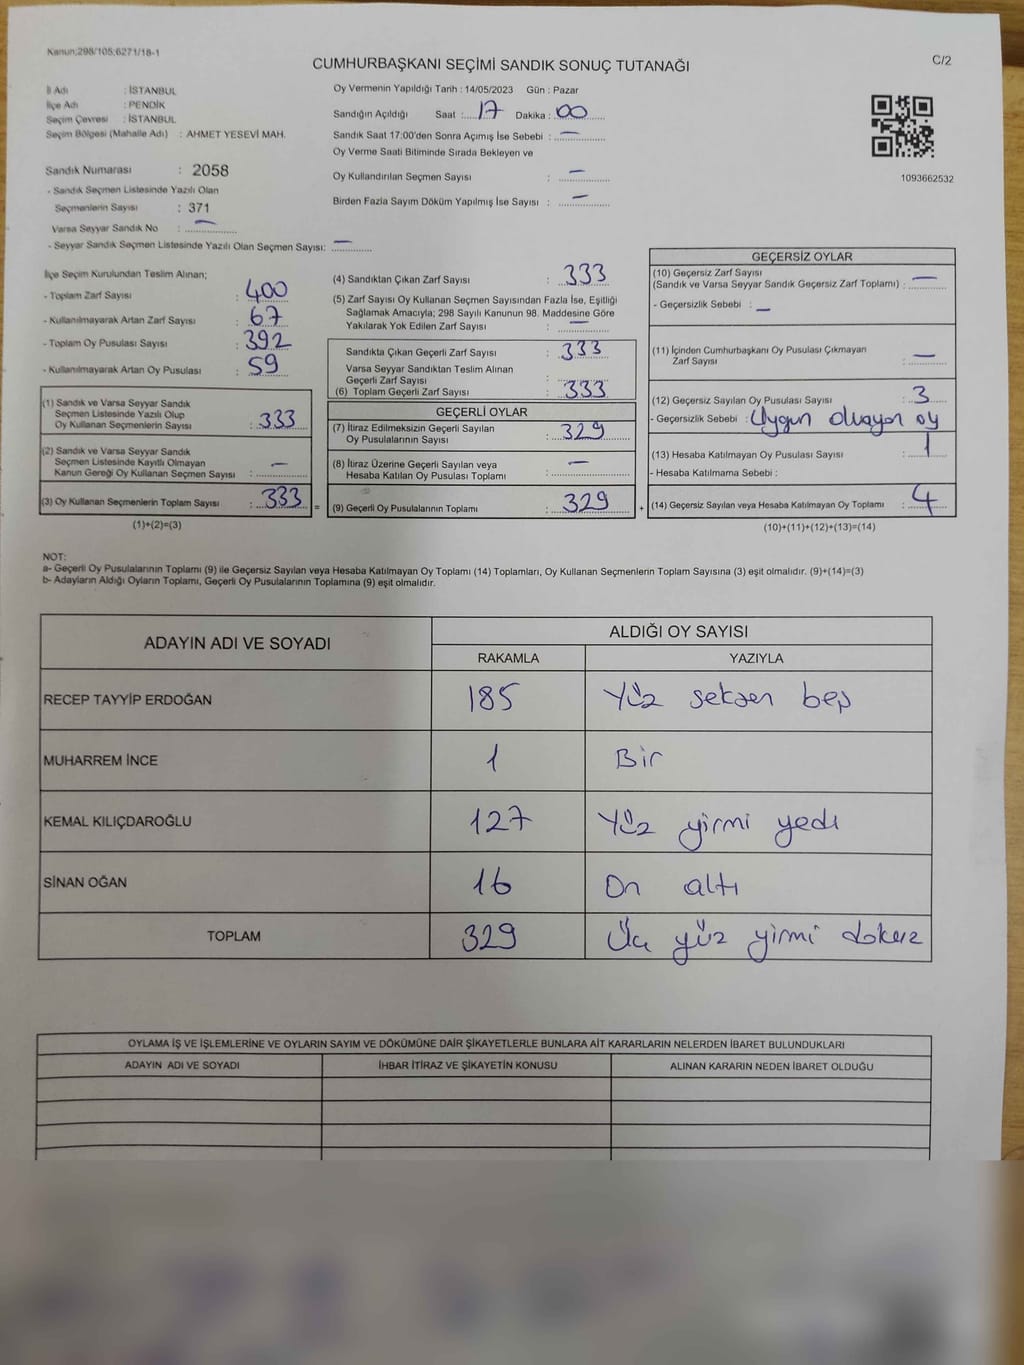 Kanun;298/105;6271/18-1
C/2
CUMHURBAŞKANI SEÇİMİ SANDIK SONUÇ TUTANAĞI
İl Adı : İSTANBUL
İlçe Adı : PENDİK
Seçim Çevresi : İSTANBUL
Seçim Bölgesi (Mahalle Adı) : AHMET YESEVİ MAH.
Sandık Numarası : 2058
- Sandık Seçmen Listesinde Yazılı Olan
Seçmenlerin Sayısı : 371
Varsa Seyyar Sandık No : —
- Seyyar Sandık Seçmen Listesinde Yazılı Olan Seçmen Sayısı: —
Oy Vermenin Yapıldığı Tarih : 14/05/2023 Gün : Pazar
Sandığın Açıldığı Saat : 17 Dakika : 00
Sandık Saat 17:00'den Sonra Açımış İse Sebebi : —
Oy Verme Saati Bitiminde Sırada Bekleyen ve
Oy Kullandırılan Seçmen Sayısı : —
Birden Fazla Sayım Döküm Yapılmış İse Sayısı : —
1093662532
İlçe Seçim Kurulundan Teslim Alınan;
- Toplam Zarf Sayısı : 400
- Kullanılmayarak Artan Zarf Sayısı : 67
- Toplam Oy Pusulası Sayısı : 392
- Kullanılmayarak Artan Oy Pusulası : 59
(1) Sandık ve Varsa Seyyar Sandık
Seçmen Listesinde Yazılı Olup
Oy Kullanan Seçmenlerin Sayısı : 333
(2) Sandık ve Varsa Seyyar Sandık
Seçmen Listesinde Kayıtlı Olmayan
Kanun Gereği Oy Kullanan Seçmen Sayısı : —
(3) Oy Kullanan Seçmenlerin Toplam Sayısı : 333
(1)+(2)=(3)
=
(4) Sandıktan Çıkan Zarf Sayısı : 333
(5) Zarf Sayısı Oy Kullanan Seçmen Sayısından Fazla İse, Eşitliği
Sağlamak Amacıyla; 298 Sayılı Kanunun 98. Maddesine Göre
Yakılarak Yok Edilen Zarf Sayısı : —
Sandıkta Çıkan Geçerli Zarf Sayısı : 333
Varsa Seyyar Sandıktan Teslim Alınan
Geçerli Zarf Sayısı :
(6) Toplam Geçerli Zarf Sayısı : 333
GEÇERLİ OYLAR
(7) İtiraz Edilmeksizin Geçerli Sayılan
Oy Pusulalarının Sayısı : 329
(8) İtiraz Üzerine Geçerli Sayılan veya
Hesaba Katılan Oy Pusulası Toplamı : —
(9) Geçerli Oy Pusulalarının Toplamı : 329
+
GEÇERSİZ OYLAR
(10) Geçersiz Zarf Sayısı
(Sandık ve Varsa Seyyar Sandık Geçersiz Zarf Toplamı) : —
- Geçersizlik Sebebi : —
(11) İçinden Cumhurbaşkanı Oy Pusulası Çıkmayan
Zarf Sayısı : —
(12) Geçersiz Sayılan Oy Pusulası Sayısı : 3
- Geçersizlik Sebebi : Uygun olmayan oy
(13) Hesaba Katılmayan Oy Pusulası Sayısı : 1
- Hesaba Katılmama Sebebi :
(14) Geçersiz Sayılan veya Hesaba Katılmayan Oy Toplamı : 4
(10)+(11)+(12)+(13)=(14)
NOT:
a- Geçerli Oy Pusulalarının Toplamı (9) ile Geçersiz Sayılan veya Hesaba Katılmayan Oy Toplamı (14) Toplamları, Oy Kullanan Seçmenlerin Toplam Sayısına (3) eşit olmalıdır. (9)+(14)=(3)
b- Adayların Aldığı Oyların Toplamı, Geçerli Oy Pusulalarının Toplamına (9) eşit olmalıdır.
ADAYIN ADI VE SOYADI
ALDIĞI OY SAYISI
RAKAMLA YAZIYLA
RECEP TAYYİP ERDOĞAN 185 Yüz seksen beş
MUHARREM İNCE 1 Bir
KEMAL KILIÇDAROĞLU 127 Yüz yirmi yedi
SİNAN OĞAN 16 On altı
TOPLAM 329 Üç yüz yirmi dokuz
OYLAMA İŞ VE İŞLEMLERİNE VE OYLARIN SAYIM VE DÖKÜMÜNE DAİR ŞİKAYETLERLE BUNLARA AİT KARARLARIN NELERDEN İBARET BULUNDUKLARI
ADAYIN ADI VE SOYADI İHBAR İTİRAZ VE ŞİKAYETİN KONUSU ALINAN KARARIN NEDEN İBARET OLDUĞU